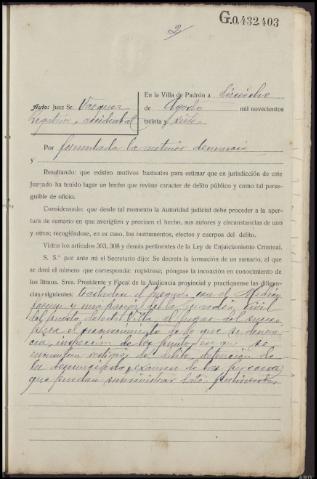 G.0.432403
2
En la Villa de Padrón a dieciocho
Auto: Juez Sr. Vazquez de Agosto mil novecientos
regentón, accidental treinta y siete.
Por formulada la anterior denuncia
y
Resultando: que existen motivos bastantes para estimar que en jurisdicción de este
Juzgado ha tenido lugar un hecho que reviste carácter de delito público y como tal perse-
guible de oficio.
Considerando: que desde tal momento la Autoridad judicial debe proceder a la aper-
tura de sumario en que averigüen y precisen el hecho, sus autores y circunstancias de uno y
otros; recogiéndose, en su caso, los instrumentos, efectos y cuerpos del delito.
Vistos los artículos 303, 308 y demás pertinentes de la Ley de Enjuiciamiento Criminal,
S. S.ª por ante mí el Secretario dijo: Se decreta la formación de un sumario, el que
se dará el número que corresponda; regístrese, póngase la incoación en conocimiento de
los Iltmos. Sres. Presidente y Fiscal de la Audiencia provincial y practíquense las diligen-
cias siguientes: el Juzgado con el Médico
forense y Guardia civil
del puesto de esta Villa al lugar del suceso
para el de lo que se denun-
cia, inspección de los puntos en que se
encuentren vestigios del delito, detención de
los denunciados y examen de las personas
que puedan suministrar